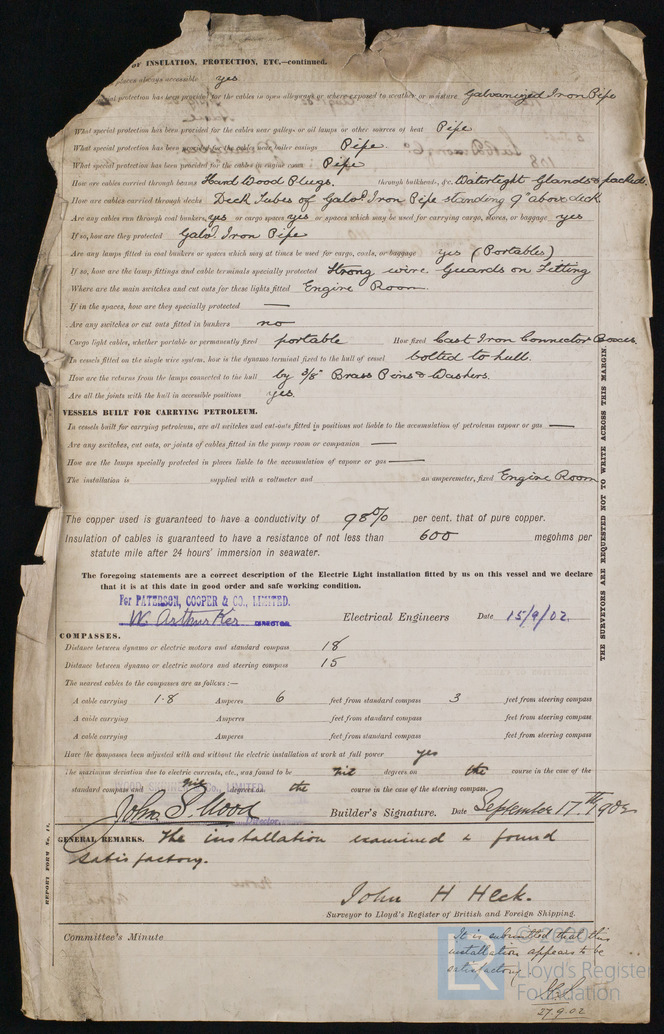 OF INSULATION, PROTECTION, ETC.—continued.
been always accessible yes
protection has been provided for the cables in open alleyways or where exposed to weather or moisture Galvanized Iron Pipe
What special protection has been provided for the cables near galley or oil lamps or other sources of heat Pipe
What special protection has been provided for the cables near boiler casings Pipe.
What special protection has been provided for the cables in engine room Pipe
How are cables carried through beams Hard Wood Plugs. through bulkheads, &c. Watertight Glands & packed.
How are cables carried through decks Deck Tubes of Galvd. Iron Pipe standing 9" above deck
Are any cables run through coal bunkers yes or cargo spaces yes or spaces which may be used for carrying cargo, stores, or baggage yes
If so, how are they protected Galvd. Iron Pipe
Are any lamps fitted in coal bunkers or spaces which may at times be used for cargo, coals, or baggage yes (Portables)
If so, how are the lamp fittings and cable terminals specially protected Strong wire Guards on Fitting
Where are the main switches and cut outs for these lights fitted Engine Room
If in the spaces, how are they specially protected —
Are any switches or cut outs fitted in bunkers no
Cargo light cables, whether portable or permanently fixed portable How fixed Cast Iron Connector Boxes.
In vessels fitted on the single wire system, how is the dynamo terminal fixed to the hull of vessel bolted to hull.
How are the returns from the lamps connected to the hull by 3/8" Brass Pins & Washers.
Are all the joints with the hull in accessible positions yes.
VESSELS BUILT FOR CARRYING PETROLEUM.
In vessels built for carrying petroleum, are all switches and cut-outs fitted in positions not liable to the accumulation of petroleum vapour or gas —
Are any switches, cut outs, or joints of cables fitted in the pump room or companion —
How are the lamps specially protected in places liable to the accumulation of vapour or gas —
The installation is supplied with a voltmeter and an amperemeter, fixed Engine Room
The copper used is guaranteed to have a conductivity of 98% per cent. that of pure copper.
Insulation of cables is guaranteed to have a resistance of not less than 600 megohms per
statute mile after 24 hours' immersion in seawater.
The foregoing statements are a correct description of the Electric Light installation fitted by us on this vessel and we declare
that it is at this date in good order and safe working condition.
For PATERSON, COOPER & CO., LIMITED.
W. Arthur Ker DIRECTOR. Electrical Engineers Date 15/9/02.
COMPASSES.
Distance between dynamo or electric motors and standard compass 18
Distance between dynamo or electric motors and steering compass 15
The nearest cables to the compasses are as follows:—
A cable carrying 1.8 Amperes 6 feet from standard compass 3 feet from steering compass
A cable carrying Amperes feet from standard compass feet from steering compass
A cable carrying Amperes feet from standard compass feet from steering compass
Have the compasses been adjusted with and without the electric installation at work at full power yes
The maximum deviation due to electric currents, etc., was found to be nil degrees on the course in the case of the
standard compass and nil degrees on the course in the case of the steering compass.
John S. Wood Director. Builder's Signature. Date September 17th 1902
GENERAL REMARKS. The installation examined & found
satisfactory.
John H Heck.
Surveyor to Lloyd's Register of British and Foreign Shipping.
Committee's Minute
It is submitted that this
installation appears to be
satisfactory
27.9.02
THE SURVEYORS ARE REQUESTED NOT TO WRITE ACROSS THIS MARGIN.
REPORT FORM No. 17.
LR
© 2020
Lloyd's Register
Foundation